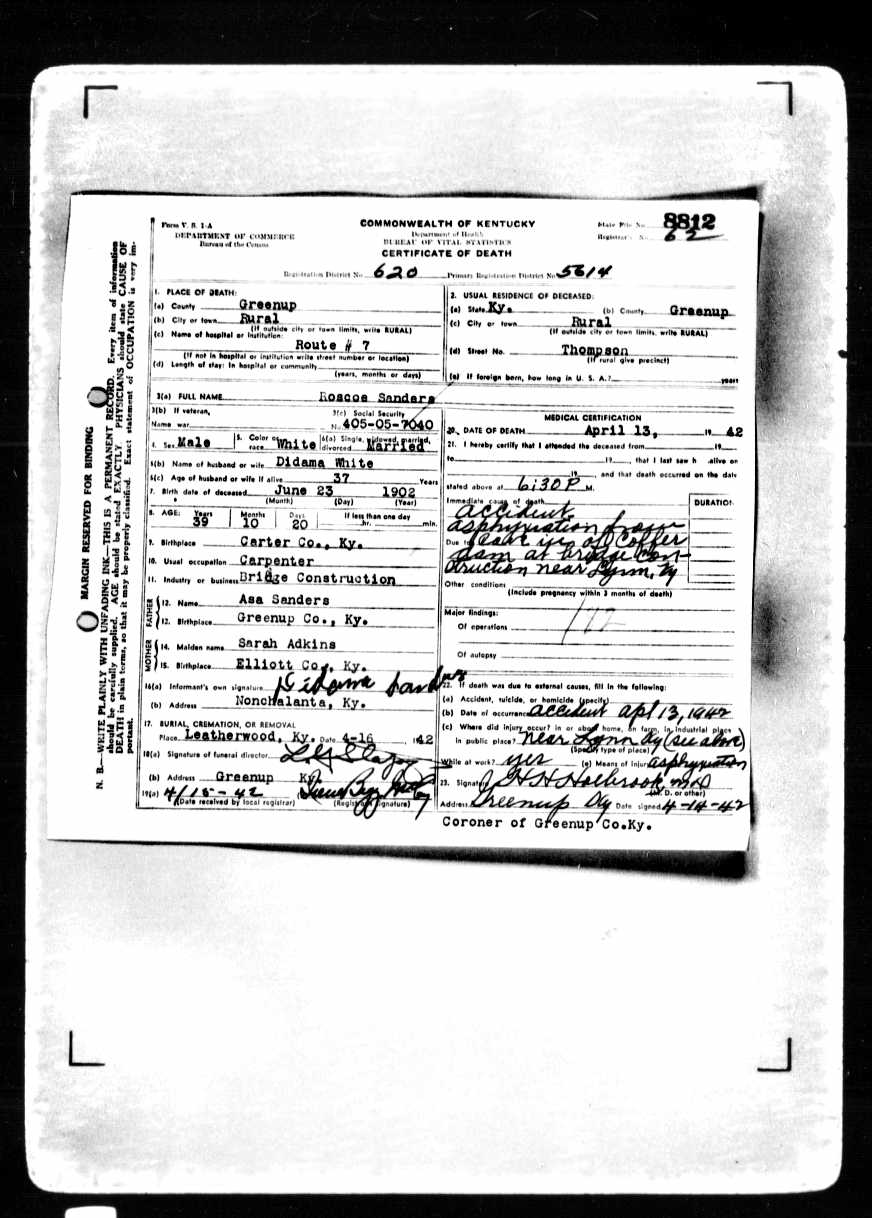 Form V. S. 1-A
DEPARTMENT OF COMMERCE
Bureau of the Census
COMMONWEALTH OF KENTUCKY
Department of Health
BUREAU OF VITAL STATISTICS
CERTIFICATE OF DEATH
State File No. 8812
Registrar's No. 62
Registration District No. 620 Primary Registration District No. 5614
MARGIN RESERVED FOR BINDING
N. B.—WRITE PLAINLY WITH UNFADING INK—THIS IS A PERMANENT RECORD. Every item of information
should be carefully supplied. AGE should be stated EXACTLY. PHYSICIANS should state CAUSE OF
DEATH in plain terms, so that it may be properly classified. Exact statement of OCCUPATION is very im-
portant.
1. PLACE OF DEATH:
(a) County Greenup
(b) City or town Rural
(If outside city or town limits, write RURAL)
(c) Name of hospital or institution:
Route # 7
(If not in hospital or institution write street number or location)
(d) Length of stay: In hospital or community
(years, months or days)
2. USUAL RESIDENCE OF DECEASED:
(a) State Ky. (b) County Greenup
(c) City or town Rural
(If outside city or town limits, write RURAL)
(d) Street No. Thompson
(If rural give precinct)
(e) If foreign born, how long in U. S. A.? years
3(a) FULL NAME Roscoe Sanders
3(b) If veteran,
Name war
3(c) Social Security
No. 405-05-7040
4. Sex Male 5. Color or race White 6(a) Single, widowed, married, divorced Married
6(b) Name of husband or wife Didama White
6(c) Age of husband or wife if alive 37 Years
7. Birth date of deceased June 23 1902
(Month) (Day) (Year)
8. AGE: Years 39 Months 10 Days 20 If less than one day hr. min.
9. Birthplace Carter Co., Ky.
10. Usual occupation Carpenter
11. Industry or business Bridge Construction
FATHER
12. Name Asa Sanders
12. Birthplace Greenup Co., Ky.
MOTHER
14. Maiden name Sarah Adkins
15. Birthplace Elliott Co., Ky.
16(a) Informant's own signature Didama Sanders
(b) Address Nonchalanta, Ky.
17. BURIAL, CREMATION, OR REMOVAL
Place Leatherwood, Ky. Date 4-16 1942
18(a) Signature of funeral director
(b) Address Greenup Ky.
19(a) 4/15-42
(Date received by local registrar) (Registrar's signature)
MEDICAL CERTIFICATION
20. DATE OF DEATH April 13, 19 42
21. I hereby certify that I attended the deceased from 19
to 19 , that I last saw h alive on
19 , and that death occurred on the date
stated above at 6:30 P M.
Immediate cause of death DURATION
Accident.
asphyxiation from
Due to cave in of coffer
dam at bridge con-
struction near Lynn, Ky
Other conditions
(Include pregnancy within 3 months of death)
Major findings:
Of operations
Of autopsy
22. If death was due to external causes, fill in the following:
(a) Accident, suicide, or homicide (specify)
(b) Date of occurrence accident Apl 13, 1942
(c) Where did injury occur? in or about home, on farm, in industrial place,
in public place? Near Lynn Ky (see above)
(Specify type of place)
While at work? yes (e) Means of injury asphyxiation
23. Signature H H Holbrook MD
(M. D. or other)
Address Greenup Ky Date signed 4-14-42
Coroner of Greenup Co.Ky.